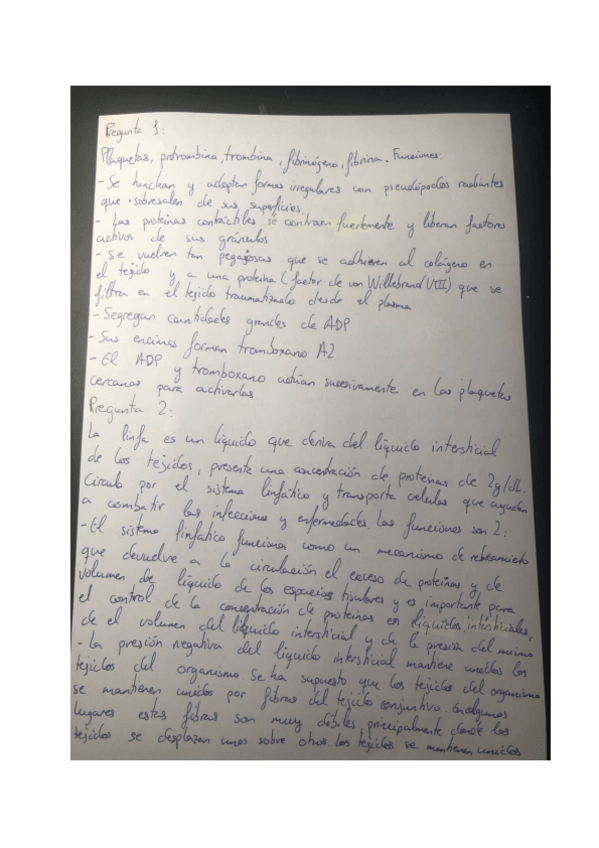 Pregunta 1:
Plaquetas, protrombina, trombina, fibrinógeno, fibrina. Funciones:
- Se hinchan y adoptan formas irregulares con pseudópodos radiantes
que sobresalen de sus superficies.
- Las proteinas contráctiles se contraen fuertemente y liberan factores
activos de sus gránulos
- Se vuelven tan pegajosas que se adhieren al colágeno en
el tejido y a una proteina (factor de von Willebrand VIII) que se
filtra en el tejido traumatizado desde el plasma
- Segregan cantidades grandes de ADP
- Sus encimas forman tromboxano A2
- El ADP y tromboxano actúan sucesivamente en las plaquetas
cercanas para activarlas
Pregunta 2:
La linfa es un líquido que deriva del líquido intersticial
de los tejidos, presenta una concentración de proteinas de 2g/dL.
Circula por el sistema linfático y transporta celulas que ayudan
a combatir las infecciones y enfermedades. Las funciones son 2:
- El sistema linfatico funciona como un mecanismo de rebosamiento
que devuelve a la circulación el exceso de proteinas y de
volumen de líquido de los espacios tisulares y es importante para
el control de la concentración de proteinas en líquidos intersticiales,
de el volumen del líquido intersticial y de la presión del mismo
- La presión negativa del líquido intersticial mantiene unidos los
tejidos del organismo. Se ha supuesto que los tejidos del organismo
se mantienen unidos por fibras del tejido conjuntivo. En algunos
lugares estas fibras son muy débiles principalmente donde los
tejidos se desplazan unos sobre otros. Los tejidos se mantienen unidos